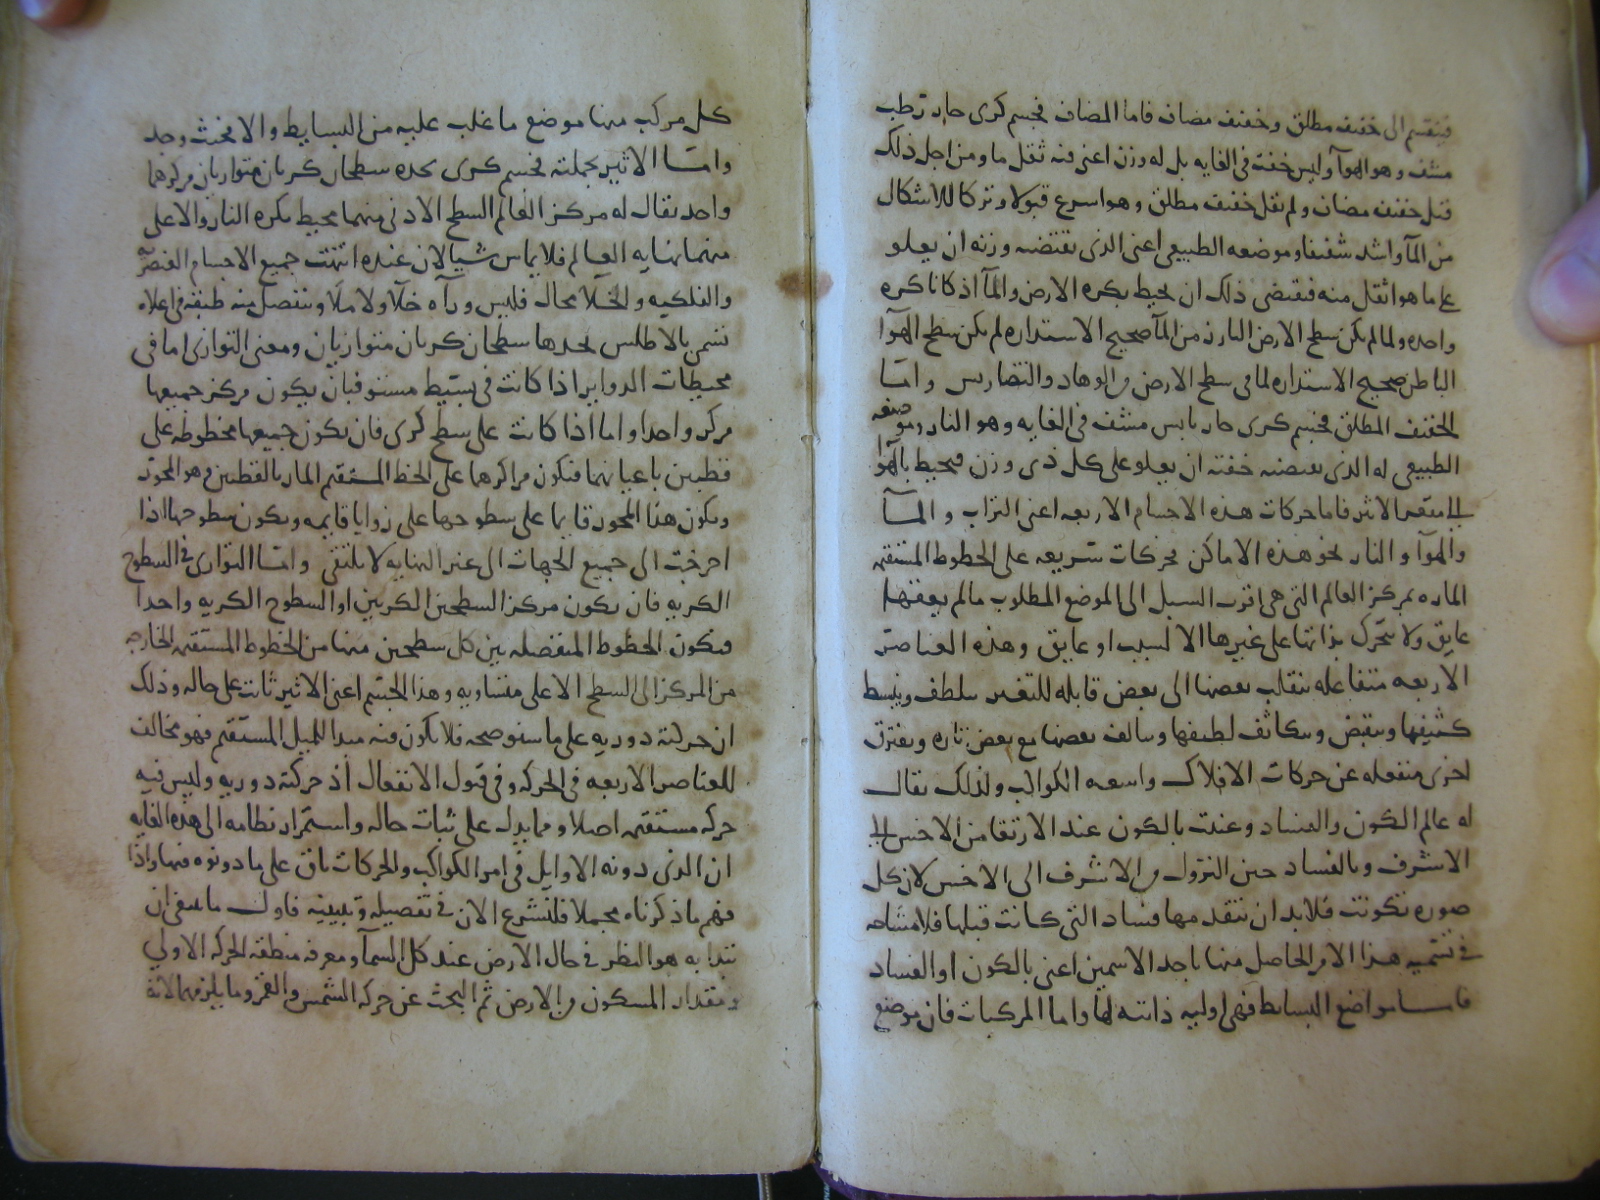 فينقسم الى خفيف مطلق وخفيف مضاف فاما المضاف فجسم كرى حار رطب
مشف وهو الهوآ وليس خفته فى الغايه بل له وزن اعنى فيه ثقل ما ومن اجل ذلك
قيل خفيف مضاف ولم يقل خفيف مطلق وهو اسرع قبولا وتركا للاشكال
من المآ واشد شفيفا وموضعه الطبيعى اعنى الذى يقتضيه وزنه ان يعلو
على ما هو اثقل منه فيقتضى ذلك ان يحيط بكره الارض والمآ اذ كانا كره
واحده ولما لم يكن سطح الارض البارز من المآ صحيح الاستداره لم يكن سطح الهوآ
الباطن صحيح الاستداره لما فى سطح الارض من الوهاد والتضاريس واما
الخفيف المطلق فجسم كرى حار يابس مشف فى الغايه وهو النار وموضعه
الطبيعى له الذى يقتضيه خفته ان يعلو على كل ذى وزن فيحيط بالهوآ
الى مقعر الاثير فاما حركات هذه الاجسام الاربعه اعنى التراب والمآ
والهوآ والنار نحو هذه الاماكن فحركات سريعه على الخطوط المستقيمه
الماره بمركز العالم التى هى اقرب السبل الى الموضع المطلوب مالم يعقها
عايق ولا تتحرك بذاتها على غيرها الا لسبب او عايق وهذه العناصر
الاربعه متفاعله ينقلب بعضها الى بعض قابله للتغير يتلطف وينبسط
كثيفها وينقبض ويتكاثف لطيفها ويتالف بعضها مع بعض تاره ويفترق
اخرى منفعله عن حركات الافلاك واشعه الكواكب ولذلك يقال
له عالم الكون والفساد وعنيت بالكون عند الارتقا من الاخس الى
الاشرف وبالفساد حين النزول من الاشرف الى الاخس لان كل
صوره تكونت فلابد ان يتقدمها فساد التى كانت قبلها فلا مشاحه
فى تسميه هذا الامر الحاصل منها باحد الاسمين اعنى بالكون او الفساد
فاما مواضع البسايط فهى اوليه ذاتيه لها واما المركبات فان موضع
كل مركب منها موضع ما غلب عليه من البسايط والا فحيث وجد
واما الاثير بجملته فجسم كرى يحده سطحان كريان متوازيان مركزهما
واحد يقال له مركز العالم السطح الادنى منهما محيط بكره النار والاعلى
منهما نهايه العالم فلا يماس شيا لان عنده انتهت جميع الاجسام العنصريه
والفلكيه والخلآ محال فليس ورآه خلآ ولا ملآ وينفصل منه طبقه فى اعلاه
تسمى بالاطلس يحدها سطحان كريان متوازيان ومعنى التوازى اما فى
محيطات الدواير اذا كانت فى بسيط مستو فبان يكون مركز جميعها
مركز واحدا واما اذا كانت على سطح كرى فان يكون جميعها مخطوطه على
قطبين باعيانهما فيكون مراكزها على الخط المستقيم المار بالقطبين وهو المحور
ويكون هذا المحور قايما على سطوحها على زوايا قايمه ويكون سطوحها اذا
اخرجت الى جميع الجهات الى غير النهايه لا يلتقى واما التوازى فى السطوح
الكريه فان يكون مركز السطحين الكريين او السطوح الكريه واحدا
فيكون الخطوط المنفصله بين كل سطحين منها من الخطوط المستقيمه الخارجه
من المركز الى السطح الاعلى متساويه وهذا الجسم اعنى الاثير ثابت على حاله وذلك
ان حركته دوريه على ما سنوضحه فلا يكون فيه مبدا للميل المستقيم فهو مخالف
للعناصر الاربعه فى الحركه وفى قبول الانفعال اذ حركته دوريه وليس فيه
حركه مستقيمه اصلا ومما يدل على ثبات حاله واستمرار نظامه الى هذه الغايه
ان الذى دونه الاوايل فى امر الكواكب والحركات باق على ما دونوه فيها واذا
فهم ما ذكرناه مجملا فلنشرع الان فى تفصيله وتبيينه فاول ما ينبغى ان
نبتدا به هو النظر فى حال الارض عند كل السمآ ومعرفه منطقه الحركه الاولى
ومقدار المسكون من الارض ثم البحث عن حركه الشمس والقمر وما يلزمهما لانه